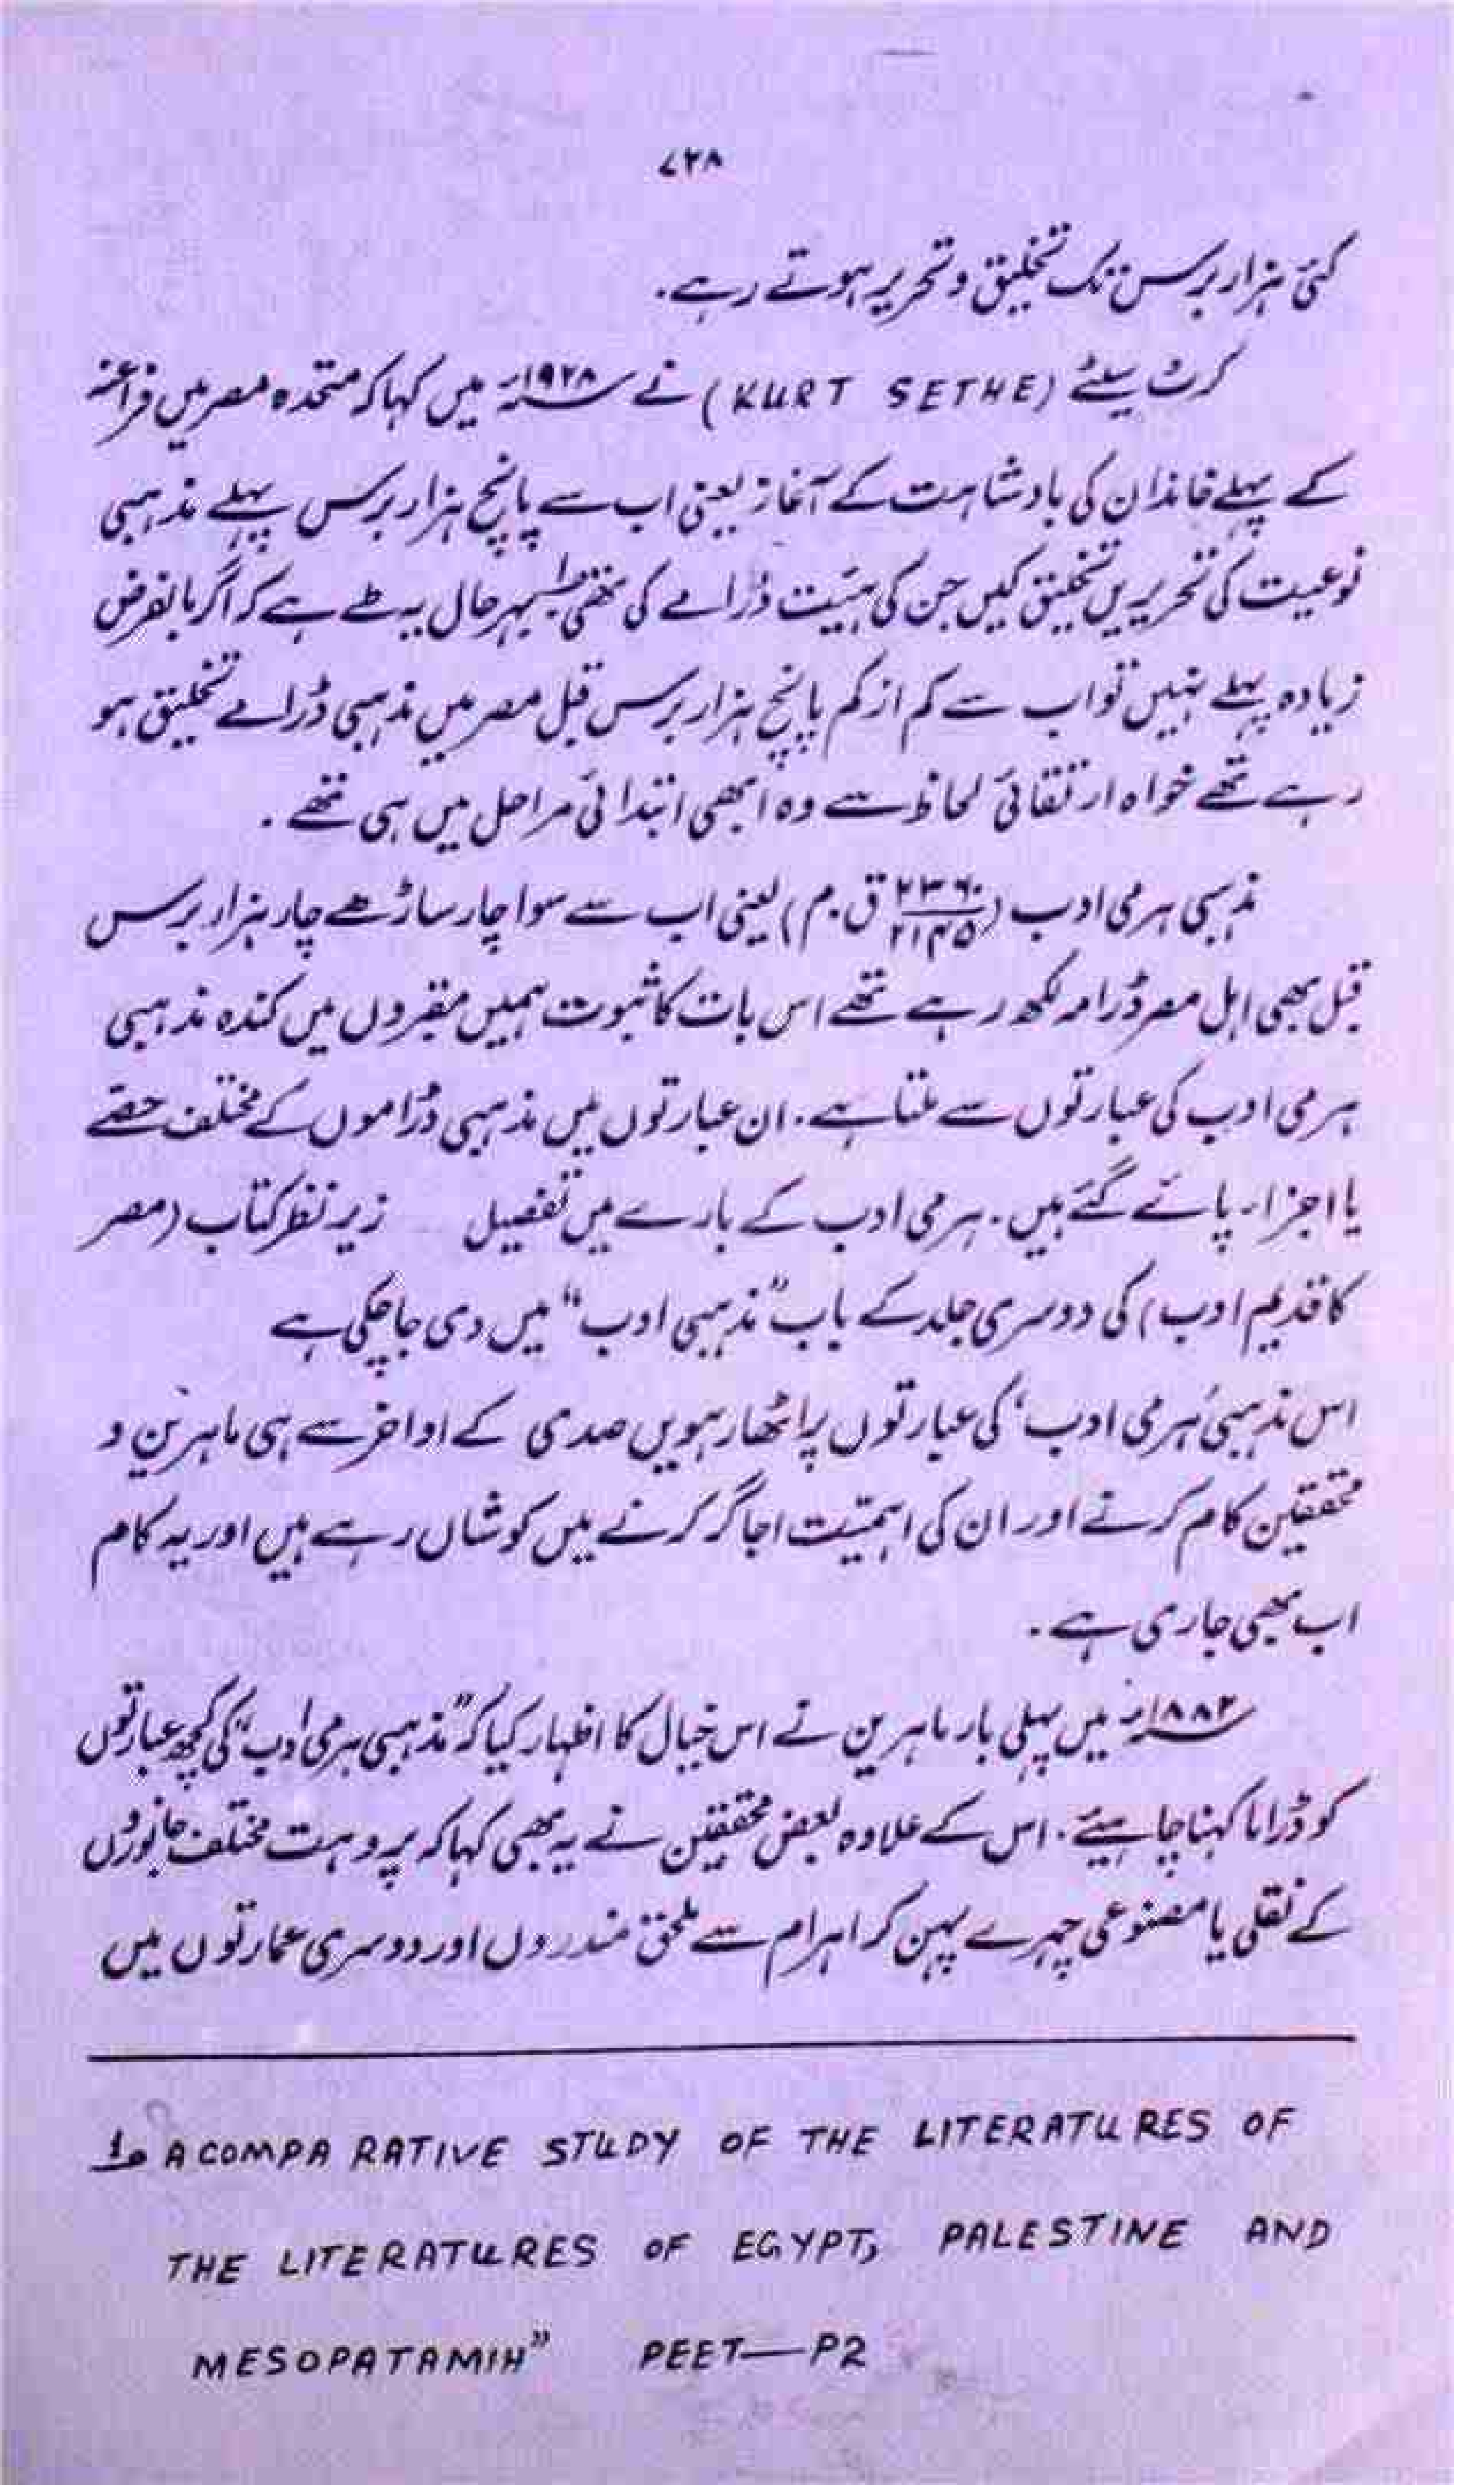 ۷۲۸
کئی ہزار برس تک تخلیق و تحریر ہوتے رہے.
کرٹ سیٹے (KURT SETHE) نے ۱۹۲۸ء میں کہا کہ متحدہ مصر میں فراعنہ
کے پہلے خاندان کی بادشاہت کے آغاز یعنی اب سے پانچ ہزار برس پہلے مذہبی
نوعیت کی تحریریں تخلیق کیں جن کی ہئیت ڈرامے کی تھی بہرحال یہ طے ہے کہ اگر بالفرض
زیادہ پہلے نہیں تو اب سے کم از کم پانچ ہزار برس قبل مصر میں مذہبی ڈرامے تخلیق ہو
رہے تھے خواہ ارتقائی لحاظ سے وہ ابھی ابتدائی مراحل میں ہی تھے.
مذہبی ہرمی ادب (۲۳۶۰/۲۱۴۵ ق.م) یعنی اب سے سوا چار ساڑھے چار ہزار برس
قبل بھی اہل مصر ڈرامہ لکھ رہے تھے اس بات کا ثبوت ہمیں مقبروں میں کندہ مذہبی
ہرمی ادب کی عبارتوں سے ملتا ہے. ان عبارتوں میں مذہبی ڈراموں کے مختلف حصّے
یا اجزاء پائے گئے ہیں. ہرمی ادب کے بارے میں تفصیل زیر نظر کتاب (مصر
کا قدیم ادب) کی دوسری جلد کے باب “مذہبی ادب” میں دی جا چکی ہے
اس مذہبی ‘ہرمی ادب’ کی عبارتوں پر اٹھارہویں صدی کے اواخر سے ہی ماہرین و
محققین کام کرنے اور ان کی اہمیّت اجاگر کرنے میں کوشاں رہے ہیں اور یہ کام
اب بھی جاری ہے.
۱۸۸۲ء میں پہلی بار ماہرین نے اس خیال کا اظہار کیا کہ “مذہبی ہرمی ادب” کی کچھ عبارتوں
کو ڈراما کہنا چاہیئے. اس کے علاوہ بعض محققین نے یہ بھی کہا کہ پروہت مختلف جانوروں
کے نقلی یا مصنوعی چہرے پہن کر اہرام سے ملحق مندروں اور دوسری عمارتوں میں
1ه A COMPARATIVE STUDY OF THE LITERATURES OF
THE LITERATURES OF EGYPT, PALESTINE AND
MESOPATAMIH” PEET—P2